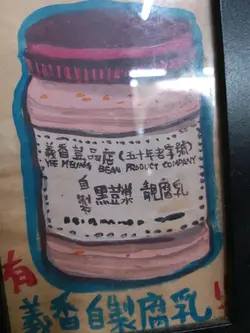 義香荳品店(五十年老字號)
YEE HEUNG BEAN PRODUCT COMPANY
自製 黑荳漿 靚腐乳
有
義香自製腐乳